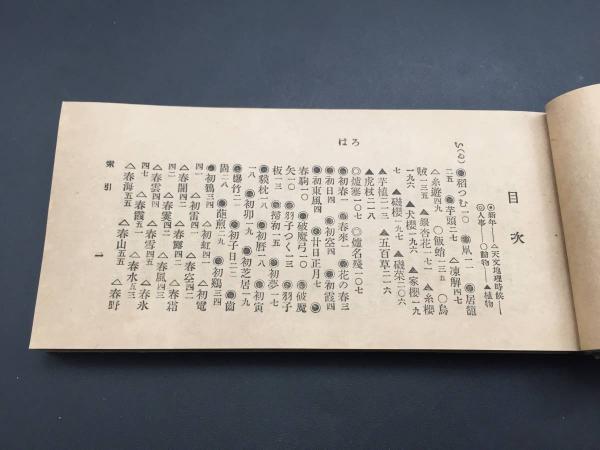 目次
◉新年――△天文地理時候――
◎人事――〇動物――▲植物
い(ゐ)
◉稻つむ一〇 ◉凧一一 ◉居籠
二五 ◉芋頭二七 △凍解四七
△糸遊四九 〇飯蛤一三五 〇烏
賊一三五 ▲銀杏花一七一 ▲糸櫻
一九六 ▲犬櫻一九六 ▲家櫻一九
七 ▲磯櫻一九七 ▲磯菜二〇六
▲芋植二一三 ▲五百草二一六
▲虎杖二一八
ろ
◎爐塞一〇七 ◎爐名殘一〇七
は
◉初春一 ◉春來一 ◉花の春三
◉初日四 ◉初空四 ◉初霞四
◉初東風四 ◉廿日正月七
春駒一〇 ◉破魔弓一〇 ◉破魔
矢一〇 ◉羽子つく一三 ◉羽子
板一三 ◉掃初一五 ◉初夢一七
◉貘枕一八 ◉初曆一八 ◉初寅
一八 ◉初卯一九 ◉初芝居一九
◉爆竹二二 ◉初子日二三 ◉齒
固二八 ◉葩煎二九 ◉初鷄三四
◉初鶴三四 △初虹四一 △初電
四一 △初雷四一 △春空四二
△春闌四二 △春霽四二 △春霜
四二 △春雲四四 △春雪四五 △春風四三
△春氷
四七 △春霞五一 △春水五三
△春海五五 △春山五五 △春野
索引
一